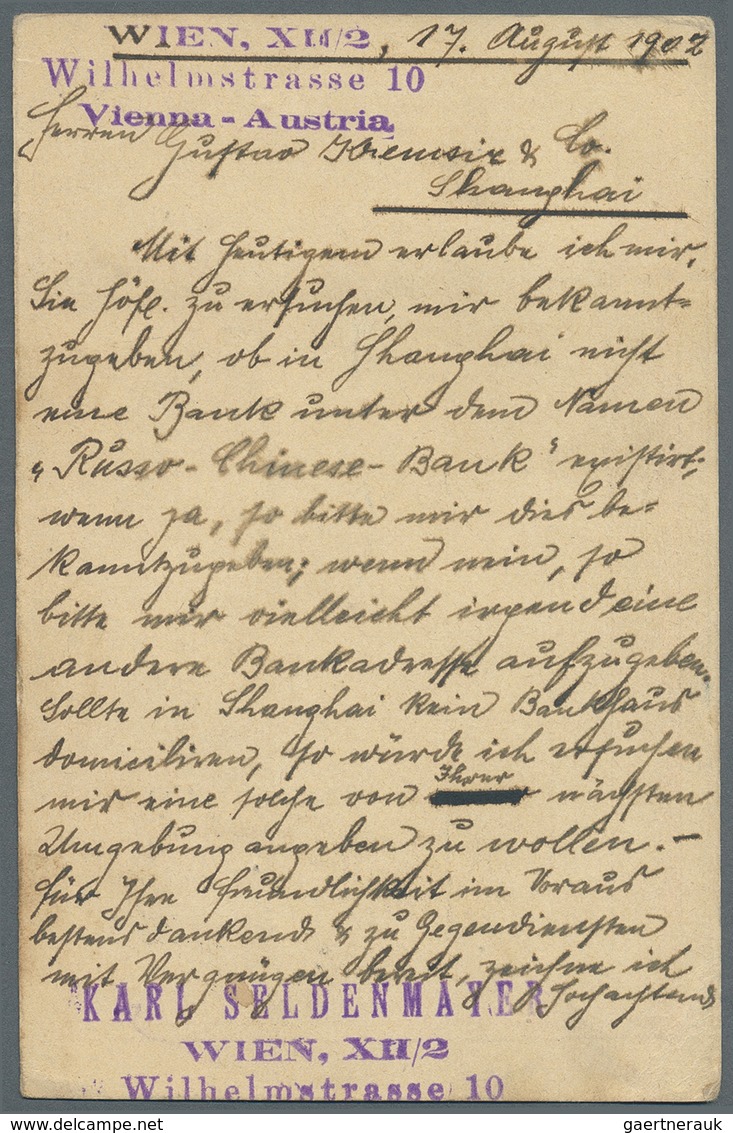 WIEN, XII/2, 17. August 1902
Wilhelmstrasse 10
Vienna - Austria
Herren Gustav & Co.
Shanghai
Mit Heutigem erlaube ich mir,
Sie höfl. zu ersuchen, mir bekannt-
zugeben, ob in Shanghai nicht
eine Bank unter dem Namen
„Russo-Chinese-Bank" existirt;
wenn ja, so bitte mir dies be-
kanntzugeben; wenn nein, so
bitte mir vielleicht irgend eine
andere Bankadresse aufzugeben.
Sollte in Shanghai kein Bankhaus
domiciliren, so würde ich ersuchen
Ihrer
mir eine solche von nächsten
Umgebung angeben zu wollen. —
Für Ihre Freundlichkeit im Voraus
bestens dankend & zu Gegendiensten
mit Vergnügen bereit, zeichne ich
Hochachtend
KARL SELDENMAYER
WIEN, XII/2
Wilhelmstrasse 10
gaertnerauk